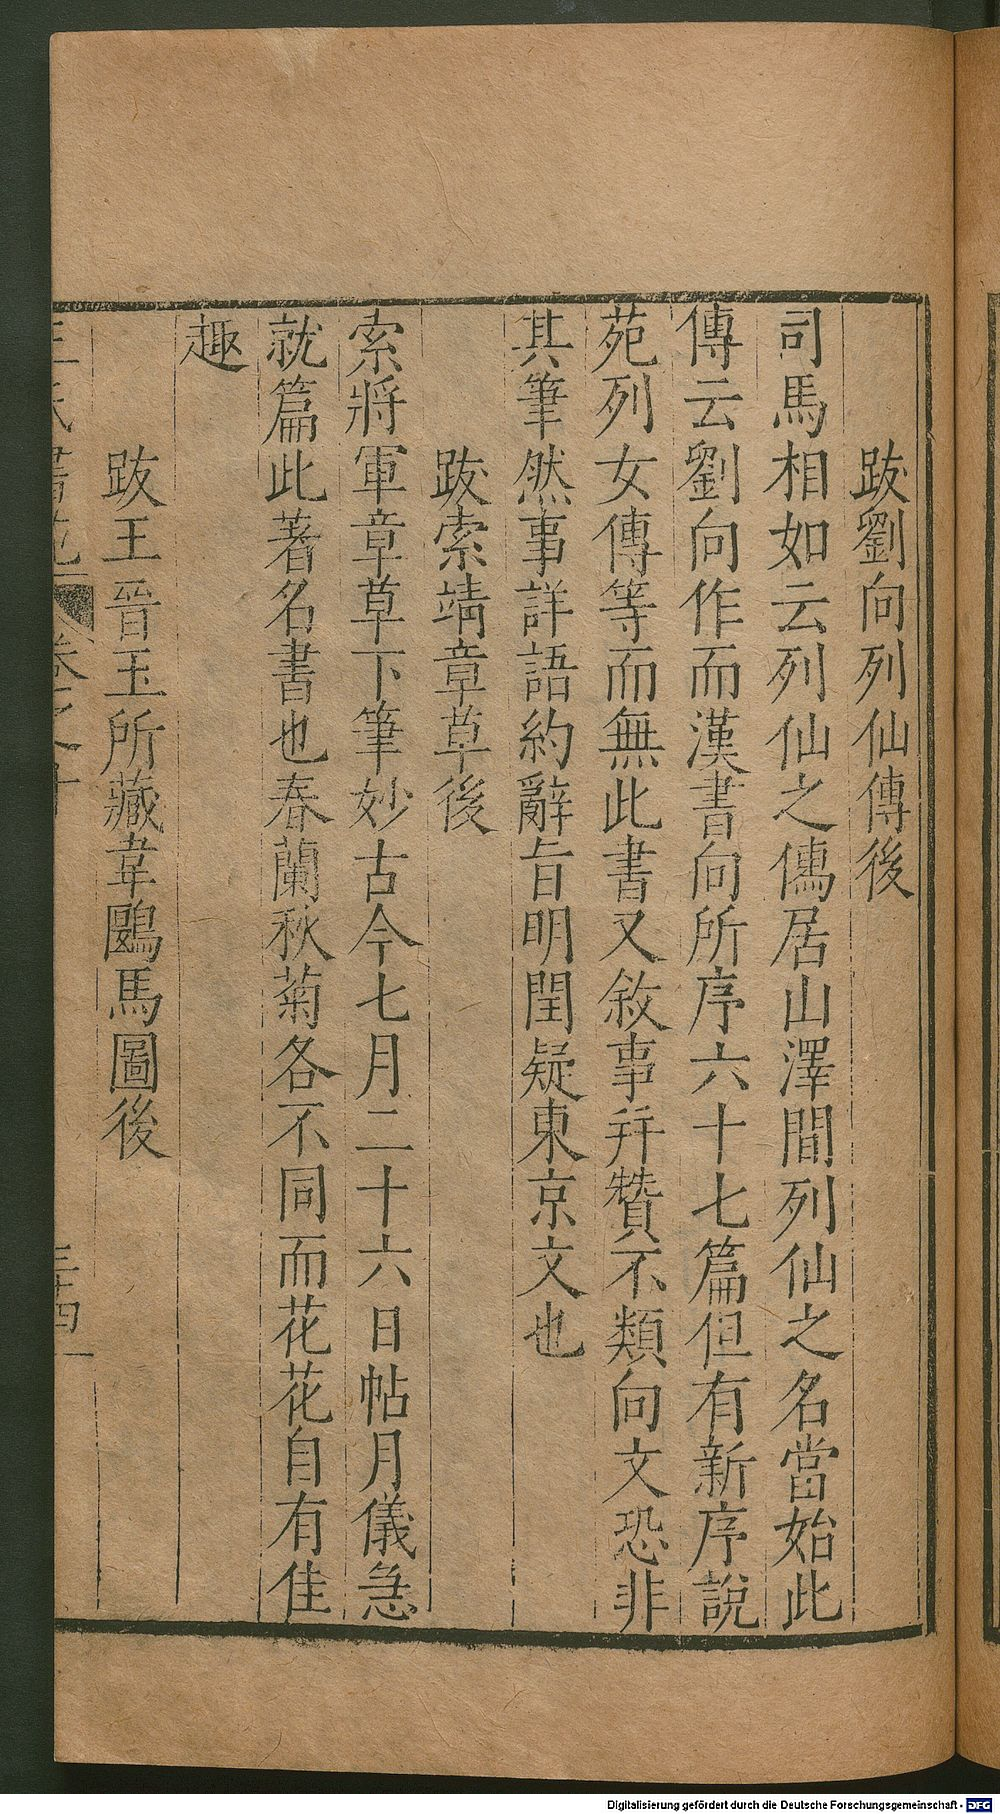 跋劉向列仙傳後
司馬相如云列仙之儔居山澤間列仙之名當始此
傳云劉向作而漢書向所序六十七篇但有新序說
苑列女傳等而無此書又敘事并贊不類向文恐非
其筆然事詳語約辭旨明閏疑東京文也
跋索靖章草後
索將軍章草下筆妙古今七月二十六日帖月儀急
就篇此著名書也春蘭秋菊各不同而花花自有佳
趣
跋王晉玉所藏韋鶠馬圖後
王氏書苑 卷之十 三十四
Digitalisierung gefördert durch die Deutsche Forschungsgemeinschaft - DFG